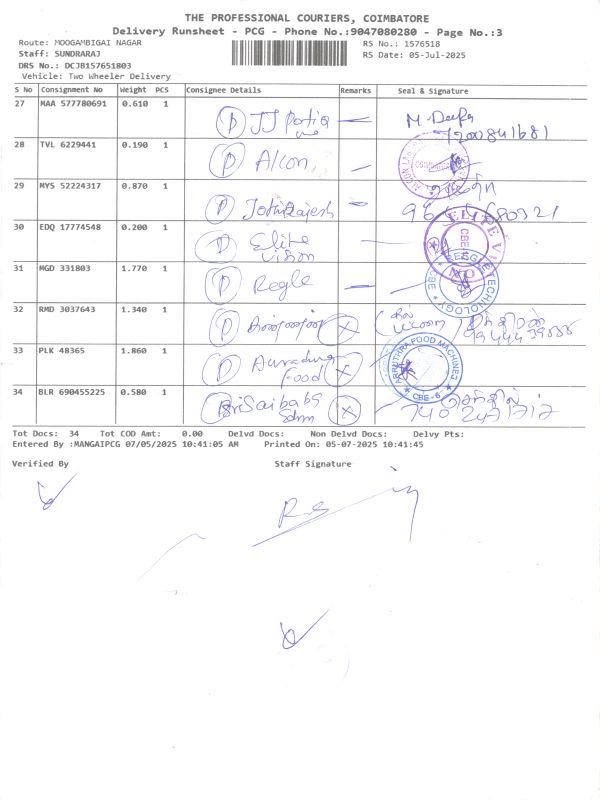 THE PROFESSIONAL COURIERS, COIMBATORE
Delivery Runsheet - PCG - Phone No.:9047080280 - Page No.:3
Route: MOOGAMBIGAI NAGAR
RS No.: 1576518
Staff: SUNDRARAJ
RS Date: 05-Jul-2025
DRS No.: DCJB157651803
Vehicle: Two Wheeler Delivery
S No Consignment No Weight PCS Consignee Details Remarks Seal & Signature
27 MAA 577780691 0.610 1 D JJ Portia M. Deepa
7200841681
28 TVL 6229441 0.190 1 D Alcon
29 MYS 52224317 0.870 1 D
30 EDQ 17774548 0.200 1 D Elite Vision
31 MGD 331803 1.770 1 D Regle
REGGLE TECHNOLOGY CBE
32 RMD 3037643 1.340 1 D X
33 PLK 48365 1.860 1 D Food X
ARRUTHRA FOOD MACHINES CBE-6
34 BLR 690455225 0.580 1 Sri Saibaba X
Tot Docs: 34 Tot COD Amt: 0.00 Delvd Docs: Non Delvd Docs: Delvy Pts:
Entered By :MANGAIPCG 07/05/2025 10:41:05 AM Printed On: 05-07-2025 10:41:45
Verified By Staff Signature
R.S